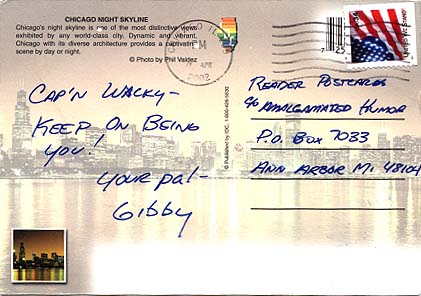 CHICAGO NIGHT SKYLINE
Chicago's night skyline is one of the most distinctive views
exhibited by any world-class city. Dynamic and vibrant,
Chicago with its diverse architecture provides a captivating
scene by day or night.
© Photo by Phil Valdez
CAP'N WACKY-
KEEP ON BEING
YOU!
YOUR PAL-
GIBBY
PM
2002
© Published by IDC, 1-800-426-5630
READER POSTCARDS
c/o AMALGAMATED HUMOR
P.O. BOX 7033
ANN ARBOR MI 48104